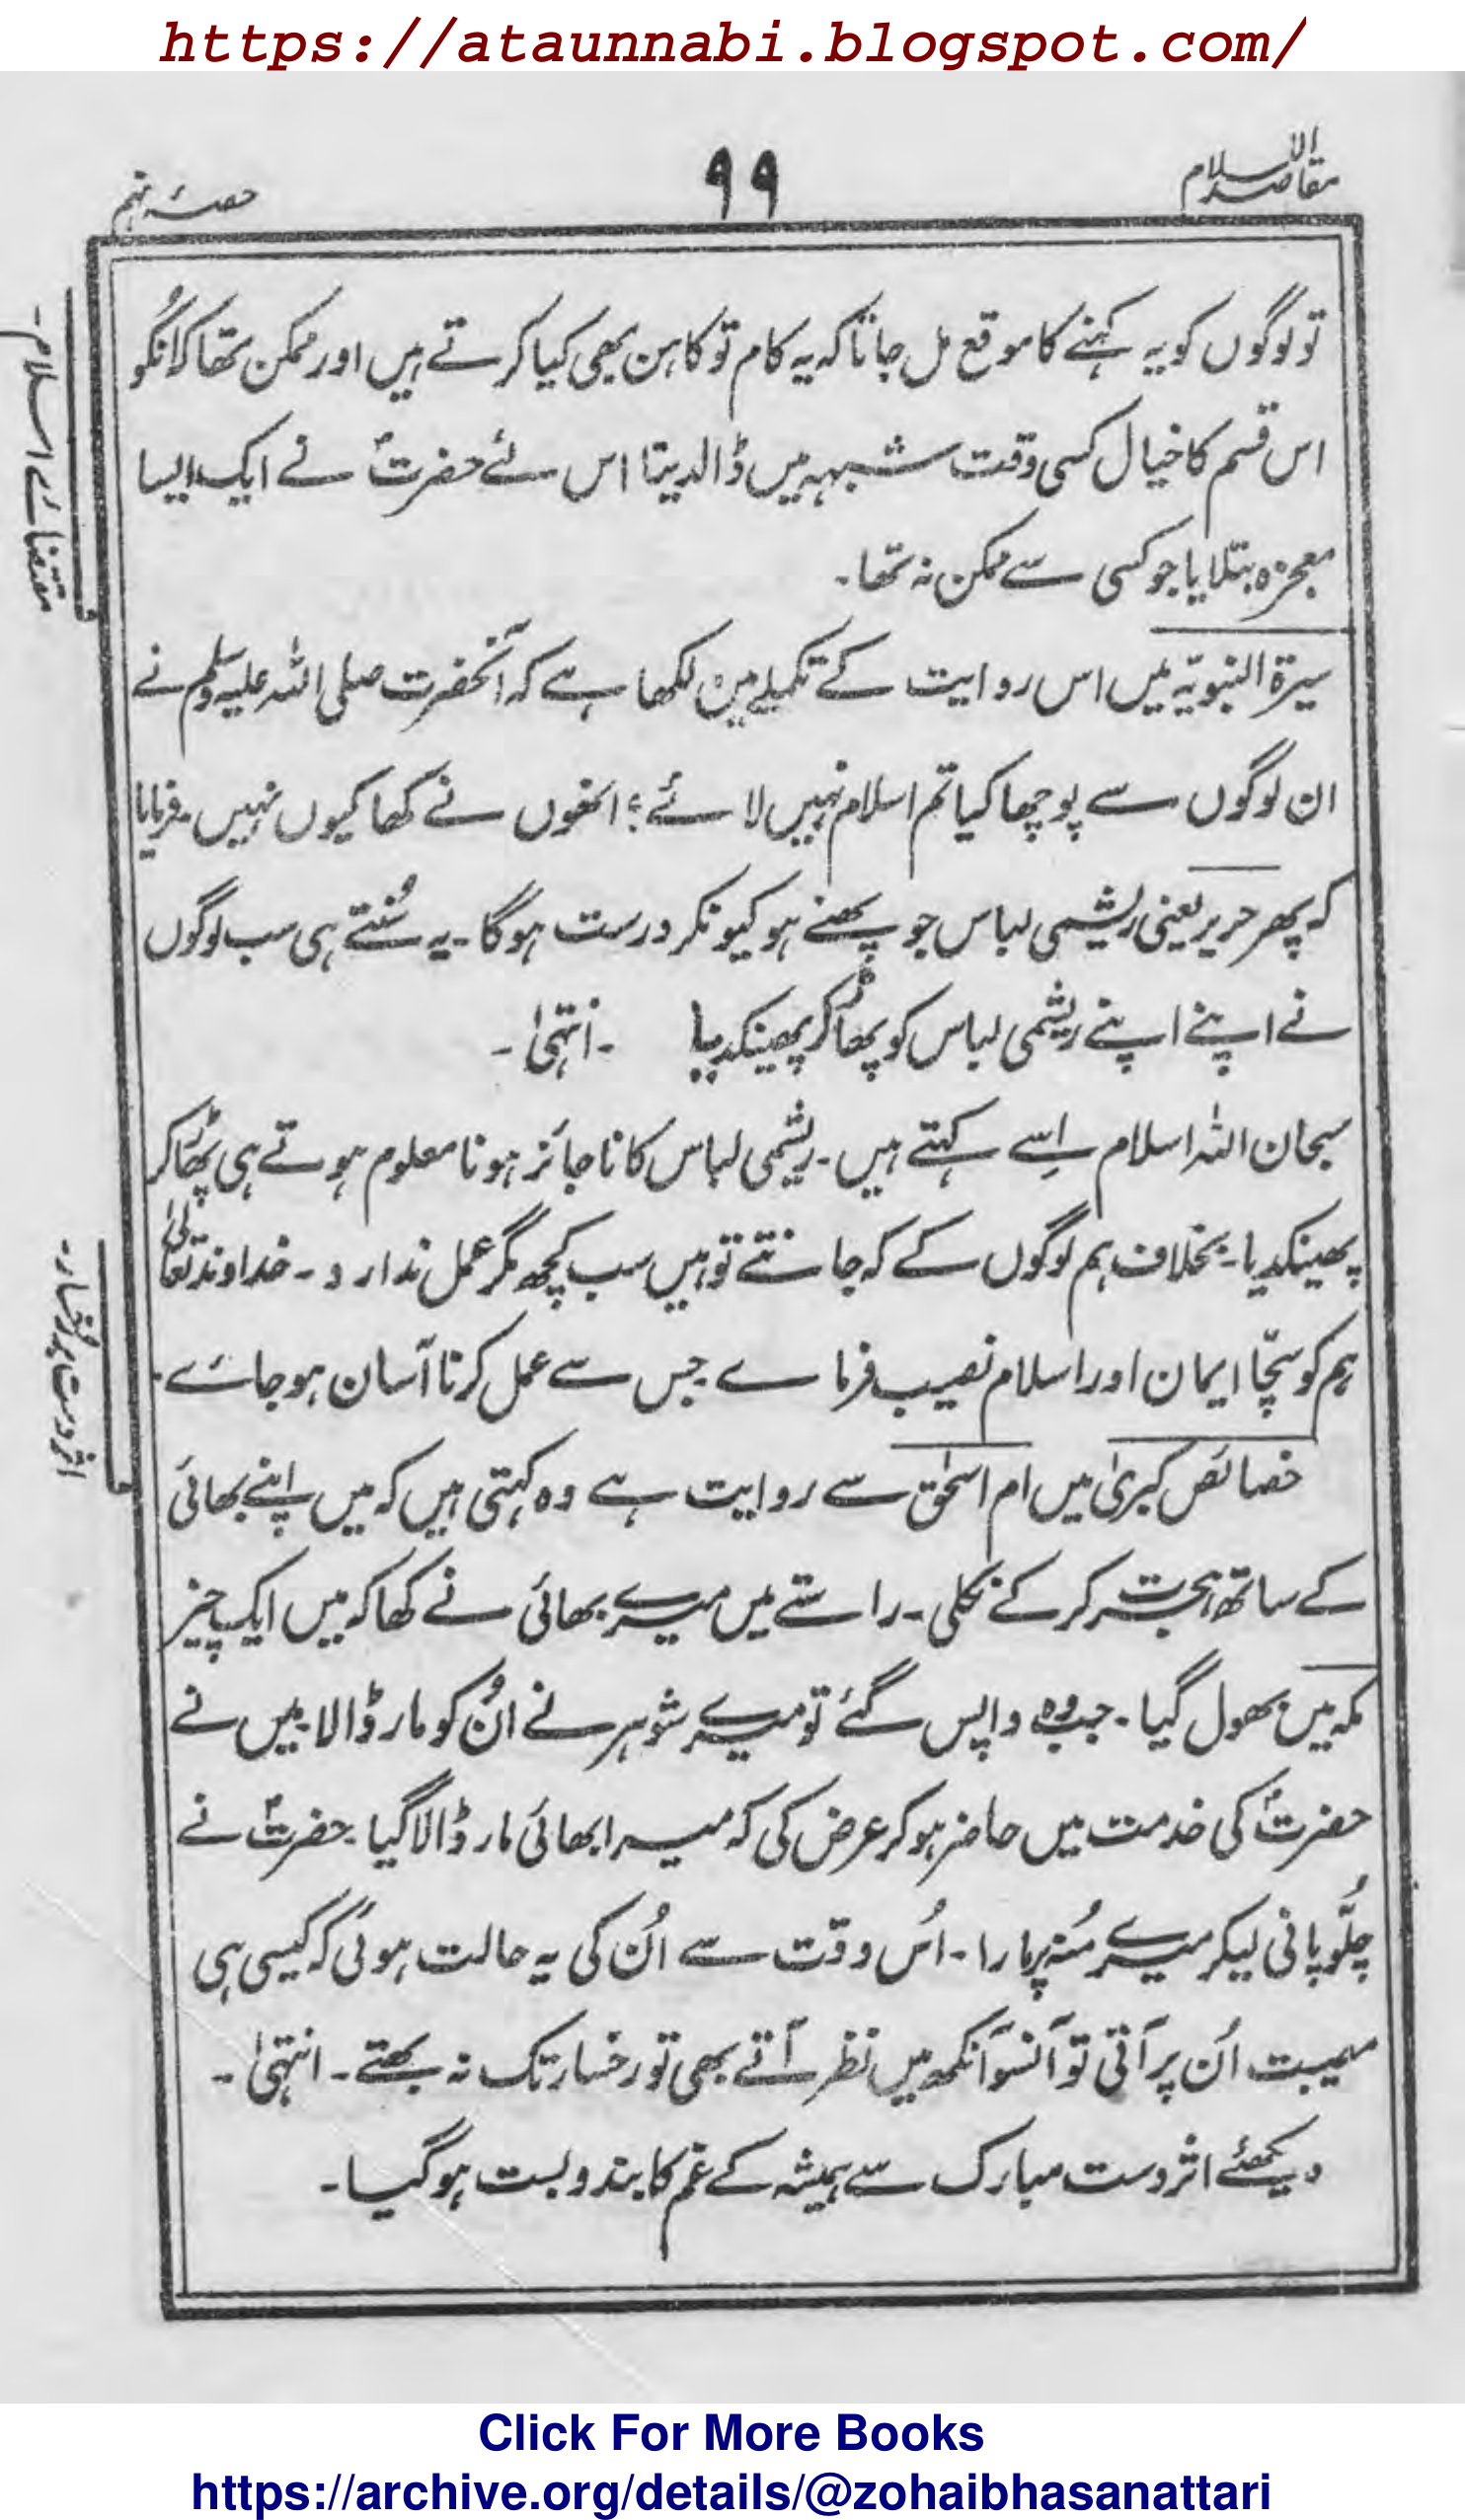 https://ataunnabi.blogspot.com/
مقاصد الاسلام
۹۹
حصہ نہم
تو لوگوں کو یہ کہنے کا موقع مل جاتا کہ یہ کام تو کاہن بھی کیا کرتے ہیں اور ممکن تھا کہ اُنکو
اس قسم کا خیال کسی وقت شبہہ میں ڈالدیتا اس لئے حضرتؐ نے ایک ایسا
معجزہ بتلایا جو کسی سے ممکن نہ تھا۔
مقتضائے اسلام۔
سیرۃ النبویّہ میں اس روایت کے تکملے میں لکھا ہے کہ آنحضرت صلی اللہ علیہ وسلم نے
ان لوگوں سے پوچھا کیا تم اسلام نہیں لائے؟ انھوں نے کھا کیوں نہیں۔ فرمایا
کہ پھر حریر یعنی ریشمی لباس جو پھنے ہو کیونکر درست ہوگا۔ یہ سُنتے ہی سب لوگوں
نے اپنے اپنے ریشمی لباس کو پھاڑ کر پھینکدیا ۔ انتہیٰ۔
سبحان اللہ اسلام اِسے کہتے ہیں۔ ریشمی لباس کا ناجائز ہونا معلوم ہوتے ہی پھاڑ کر
پھینکدیا۔ بخلاف ہم لوگوں کے کہ جانتے تو ہیں سب کچھ مگر عمل ندارد۔ خداوند تعالیٰ
ہم کو سچّا ایمان اور اسلام نصیب فرماے جس سے عمل کرنا آسان ہو جائے۔
اثر دست پر رخسار۔
خصائص کبریٰ میں ام اسحٰق سے روایت ہے وہ کہتی ہیں کہ میں اپنے بھائی
کے ساتھ ہجرت کر کے نکلی۔ راستے میں میرے بھائی نے کھا کہ میں ایک چیز
مکہ میں بھول گیا۔ جب وہ واپس گئے تو میرے شوہر نے اُن کو مار ڈالا۔ میں نے
حضرتؐ کی خدمت میں حاضر ہو کر عرض کی کہ میرا بھائی مار ڈالا گیا۔ حضرتؐ نے
چلّو پانی لیکر میرے مُنہ پر مارا۔ اُس وقت سے اُن کی یہ حالت ہوئی کہ کیسی ہی
مصیبت اُن پر آتی تو آنسو آنکھ میں نظر آتے بھی تو رخسار تک نہ بھتے۔ انتہیٰ۔
دیکھئے اثر دست مبارک سے ہمیشہ کے غم کا بندوبست ہوگیا۔
Click For More Books
https://archive.org/details/@zohaibhasanattari